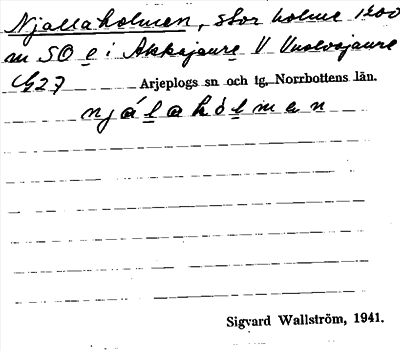 Njallaholmen, stor holme 1200
m SO e i Akkajaure V Vuolvojaure
G27 Arjeplogs sn och tg, Norrbottens län.
njálahólmen
Sigvard Wallström, 1941.